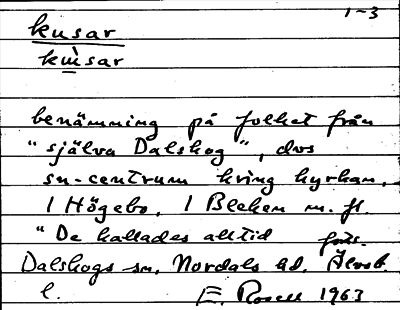 1-3
kusar
kùsar
benämning på folket från
"själva Dalskog", dvs
sn-centrum kring kyrkan,
i Högebo, i Bleken m. fl.
"De kallades alltid förr.
Dalskogs sn, Nordals hd. Älvsb.
l. E. Rosell 1963